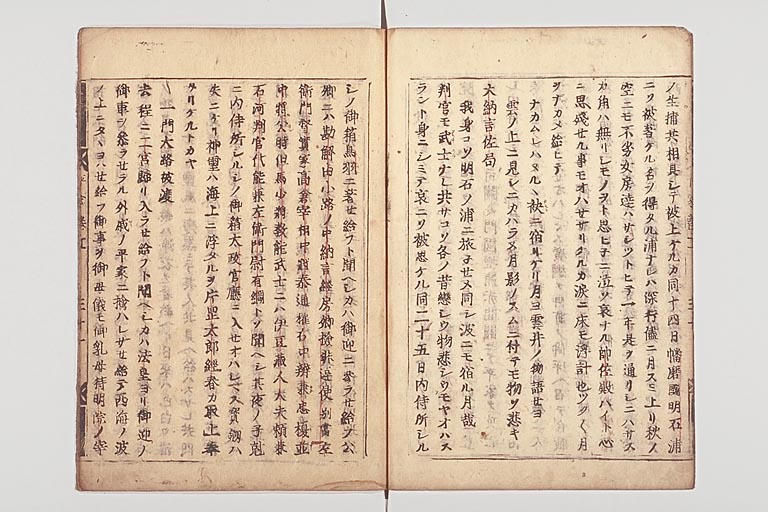 ノ生捕共相具シテ被上ケルカ同十四日幡磨國明石浦
ニソ被着ケル名ヲ得タル浦ナレハ深行儘ニ月スミ上リ秋ノ
空ニモ不劣女房達ハサシツトヒテ一年是ヲ通リシニハ
カ角ハ無リシモノヲト思ヒテニ泣ソ哀ナル帥佐殿ハイト心
ニ思残セル事モオハセサリケルカ涙ニ床モ浮計也ツクく月
ヲナカメ給ヒテ
ナカムレハヌルヽ袂ニ宿リケリ月ヨ雲井ノ物語セヨ
雲ノ上ニ見シニカハラヌ月影ノスムニ付テモ物ソ悲キ
大納言佐局
我身コソ明石ノ浦ニ旅子セメ同シ波ニモ宿ル月哉
判官モ武士ナレ共サコソ各ノ昔戀シウ物悲シウモヤオハス
ラント身ニシミテ哀ニソ被思ケル同二十五日内侍所シル
シノ御箱鳥羽ニ著せ給フト聞ヘシカハ御迎ニ参ラせ給フ公
卿ニハ勘解由小路ノ中納言經房卿檢非違使別當左
衛門督實家高倉宰相中將泰通權右中辨兼忠榎並
中將公時但馬少將教能武士ニハ伊豆藏人大夫頼兼
石河判官代能兼左衛門尉有綱トソ聞ヘシ其夜ノ子剋
ニ内侍所シルシノ御箱太政官廳ニ入せオハシマス寳劔ハ
失ニケリ神璽ハ海上ニ浮タルヲ片岡太郎經春カ取上奉
タリケルトカヤ
一門大路被渡
去程ニ二宮歸リ入ラせ給フト聞ヘシカハ法皇ヨリ御迎ノ
御車ヲ參ラせラル外戚ノ平家ニ捨ハレサせ給テ西海ノ波
ノ上ニタヽヨハせ給フ御事ヲ御母儀モ御乳母持明院ノ宰